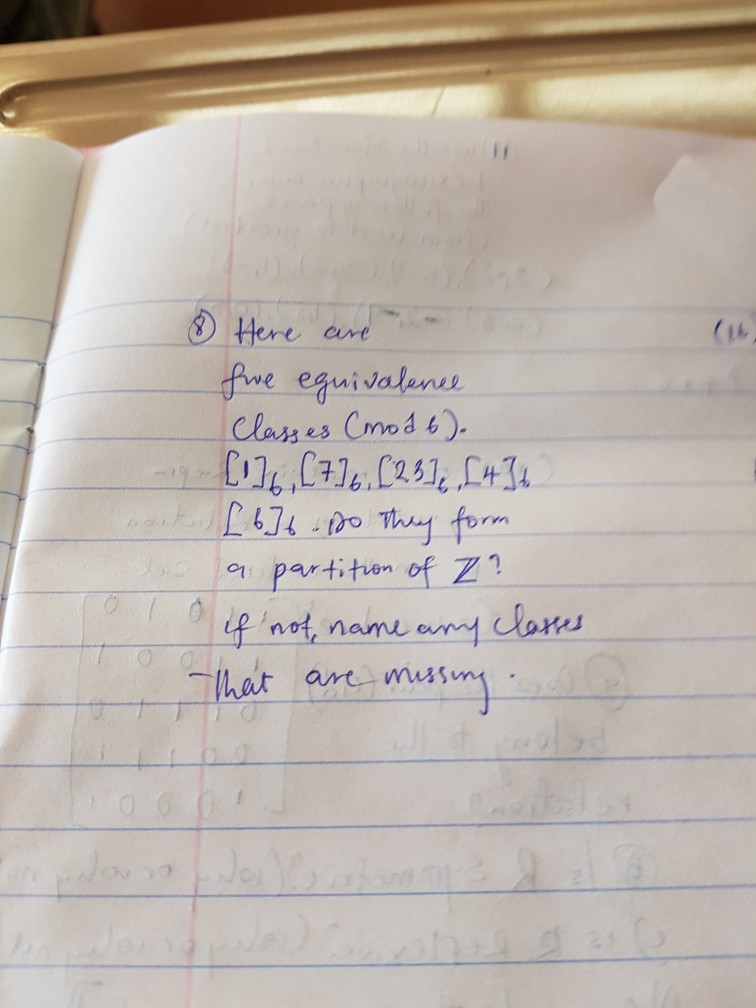 ⑧ Here are
five equivalence
Classes (mod 6).
[1]6, [7]6, [23]6, [4]6
[6]6. Do they form
a partition of ℤ?
if not, name any classes
that are missing.